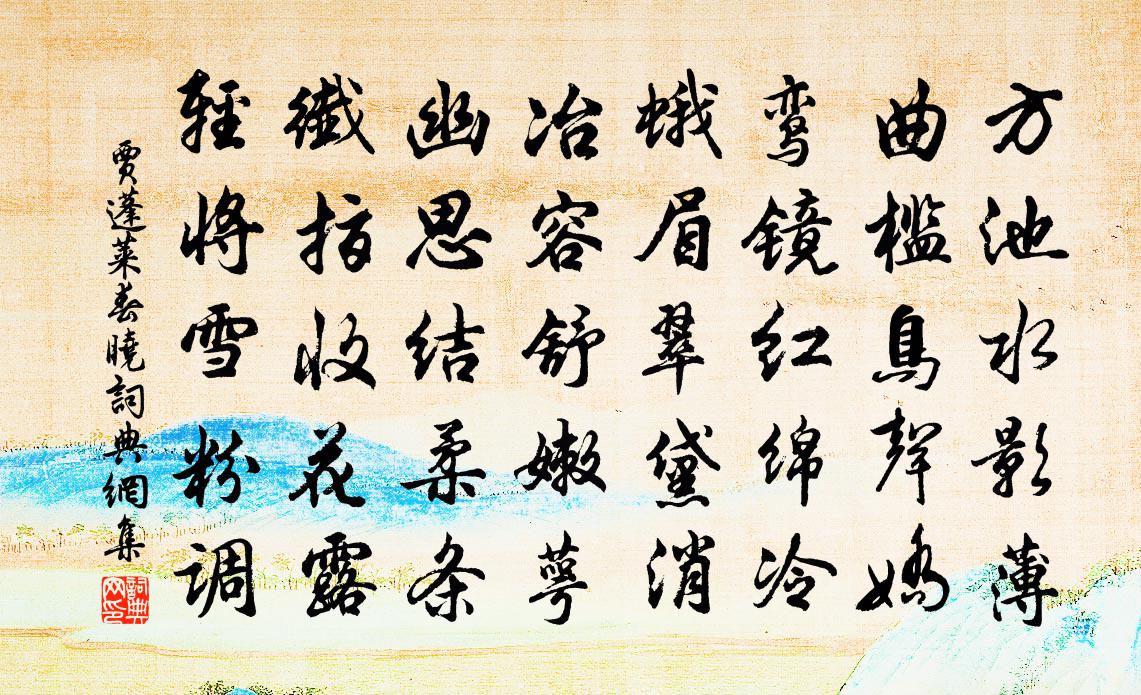 方池水影薄
曲槛鳥聲嬌
鸾镜红绵冷
蛾眉翠黛消
冶容舒嫩萼
幽思结柔条
纖指收花露
輕将雪粉调
賈蓬萊春曉詞典網集
詞典網印